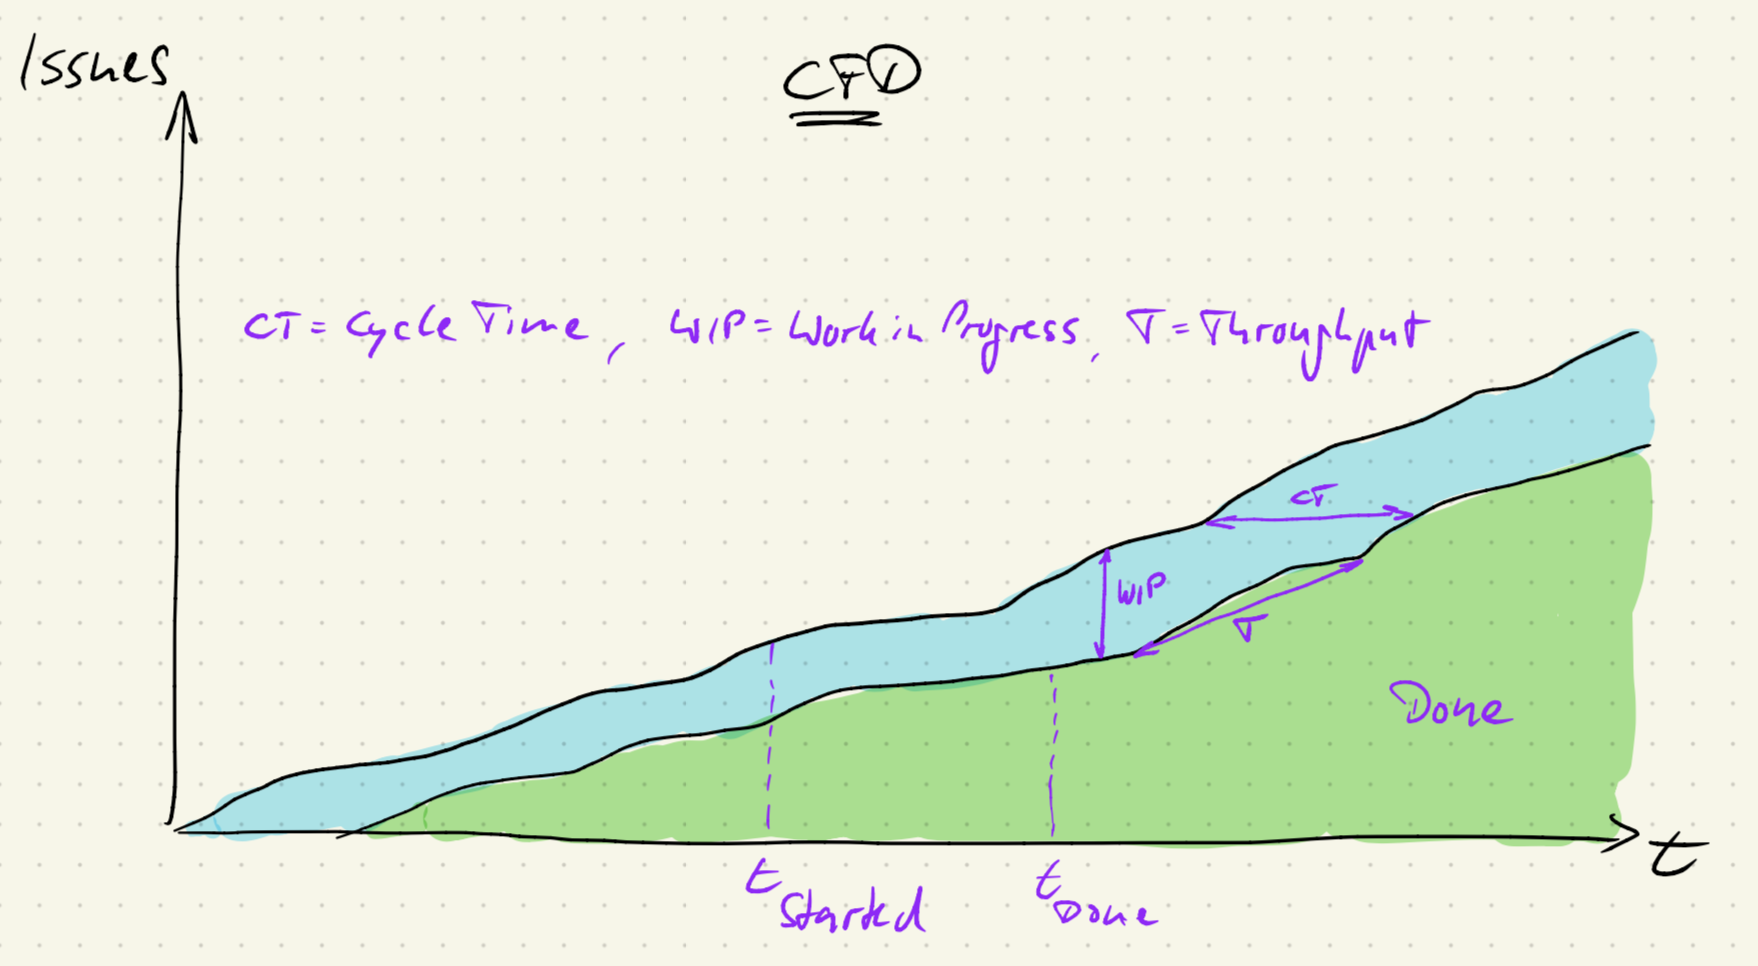 Issues
CFD
CT = Cycle Time, WIP = Work in Progress, T = Throughput
CT
WIP
T
Done
t
t Started
t Done